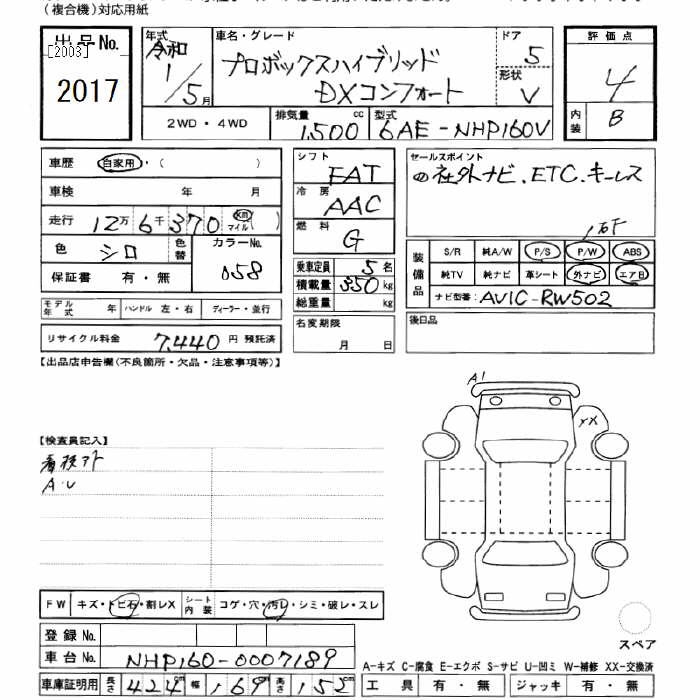 (複合機)対応用紙
出品No.
[2003]
2017
年式 令和 1/5月
車名・グレード
プロボックスハイブリッド
DXコンフォート
ドア 5
形状 V
評価点
4
内装 B
2WD・4WD
排気量 1500 cc
型式 6AE-NHP160V
車歴 自家用・( )
車検 年 月
走行 12万6千370 km マイル ( )
色 シロ 色替 カラーNo. 058
保証書 有・無
モデル年式 年 ハンドル 左・右 ディーラー・並行
リサイクル料金 7,440 円 預託済
シフト FAT
冷房 AAC
燃料 G
乗車定員 5名
積載量 350 kg
総重量 kg
名変期限
月 日
セールスポイント
社外ナビ.ETC.キーレス
装備品
S/R 純A/W P/S P/W ABS
純TV 純ナビ 革シート 外ナビ エアB
ナビ型番: AVIC-RW502
後日品
【出品店申告欄(不良箇所・欠品・注意事項等)】
【検査員記入】
A・U
A1
XX
FW キズ・トビ石・割レX シート内装 コゲ・穴・汚レ・シミ・破レ・スレ
登録No.
車台No. NHP160-0007189
車庫証明用 長さ 424cm 幅 169cm 高さ 152cm
スペア
A-キズ C-腐食 E-エクボ S-サビ U-凹ミ W-補修 XX-交換済
工具 有・無 ジャッキ 有・無